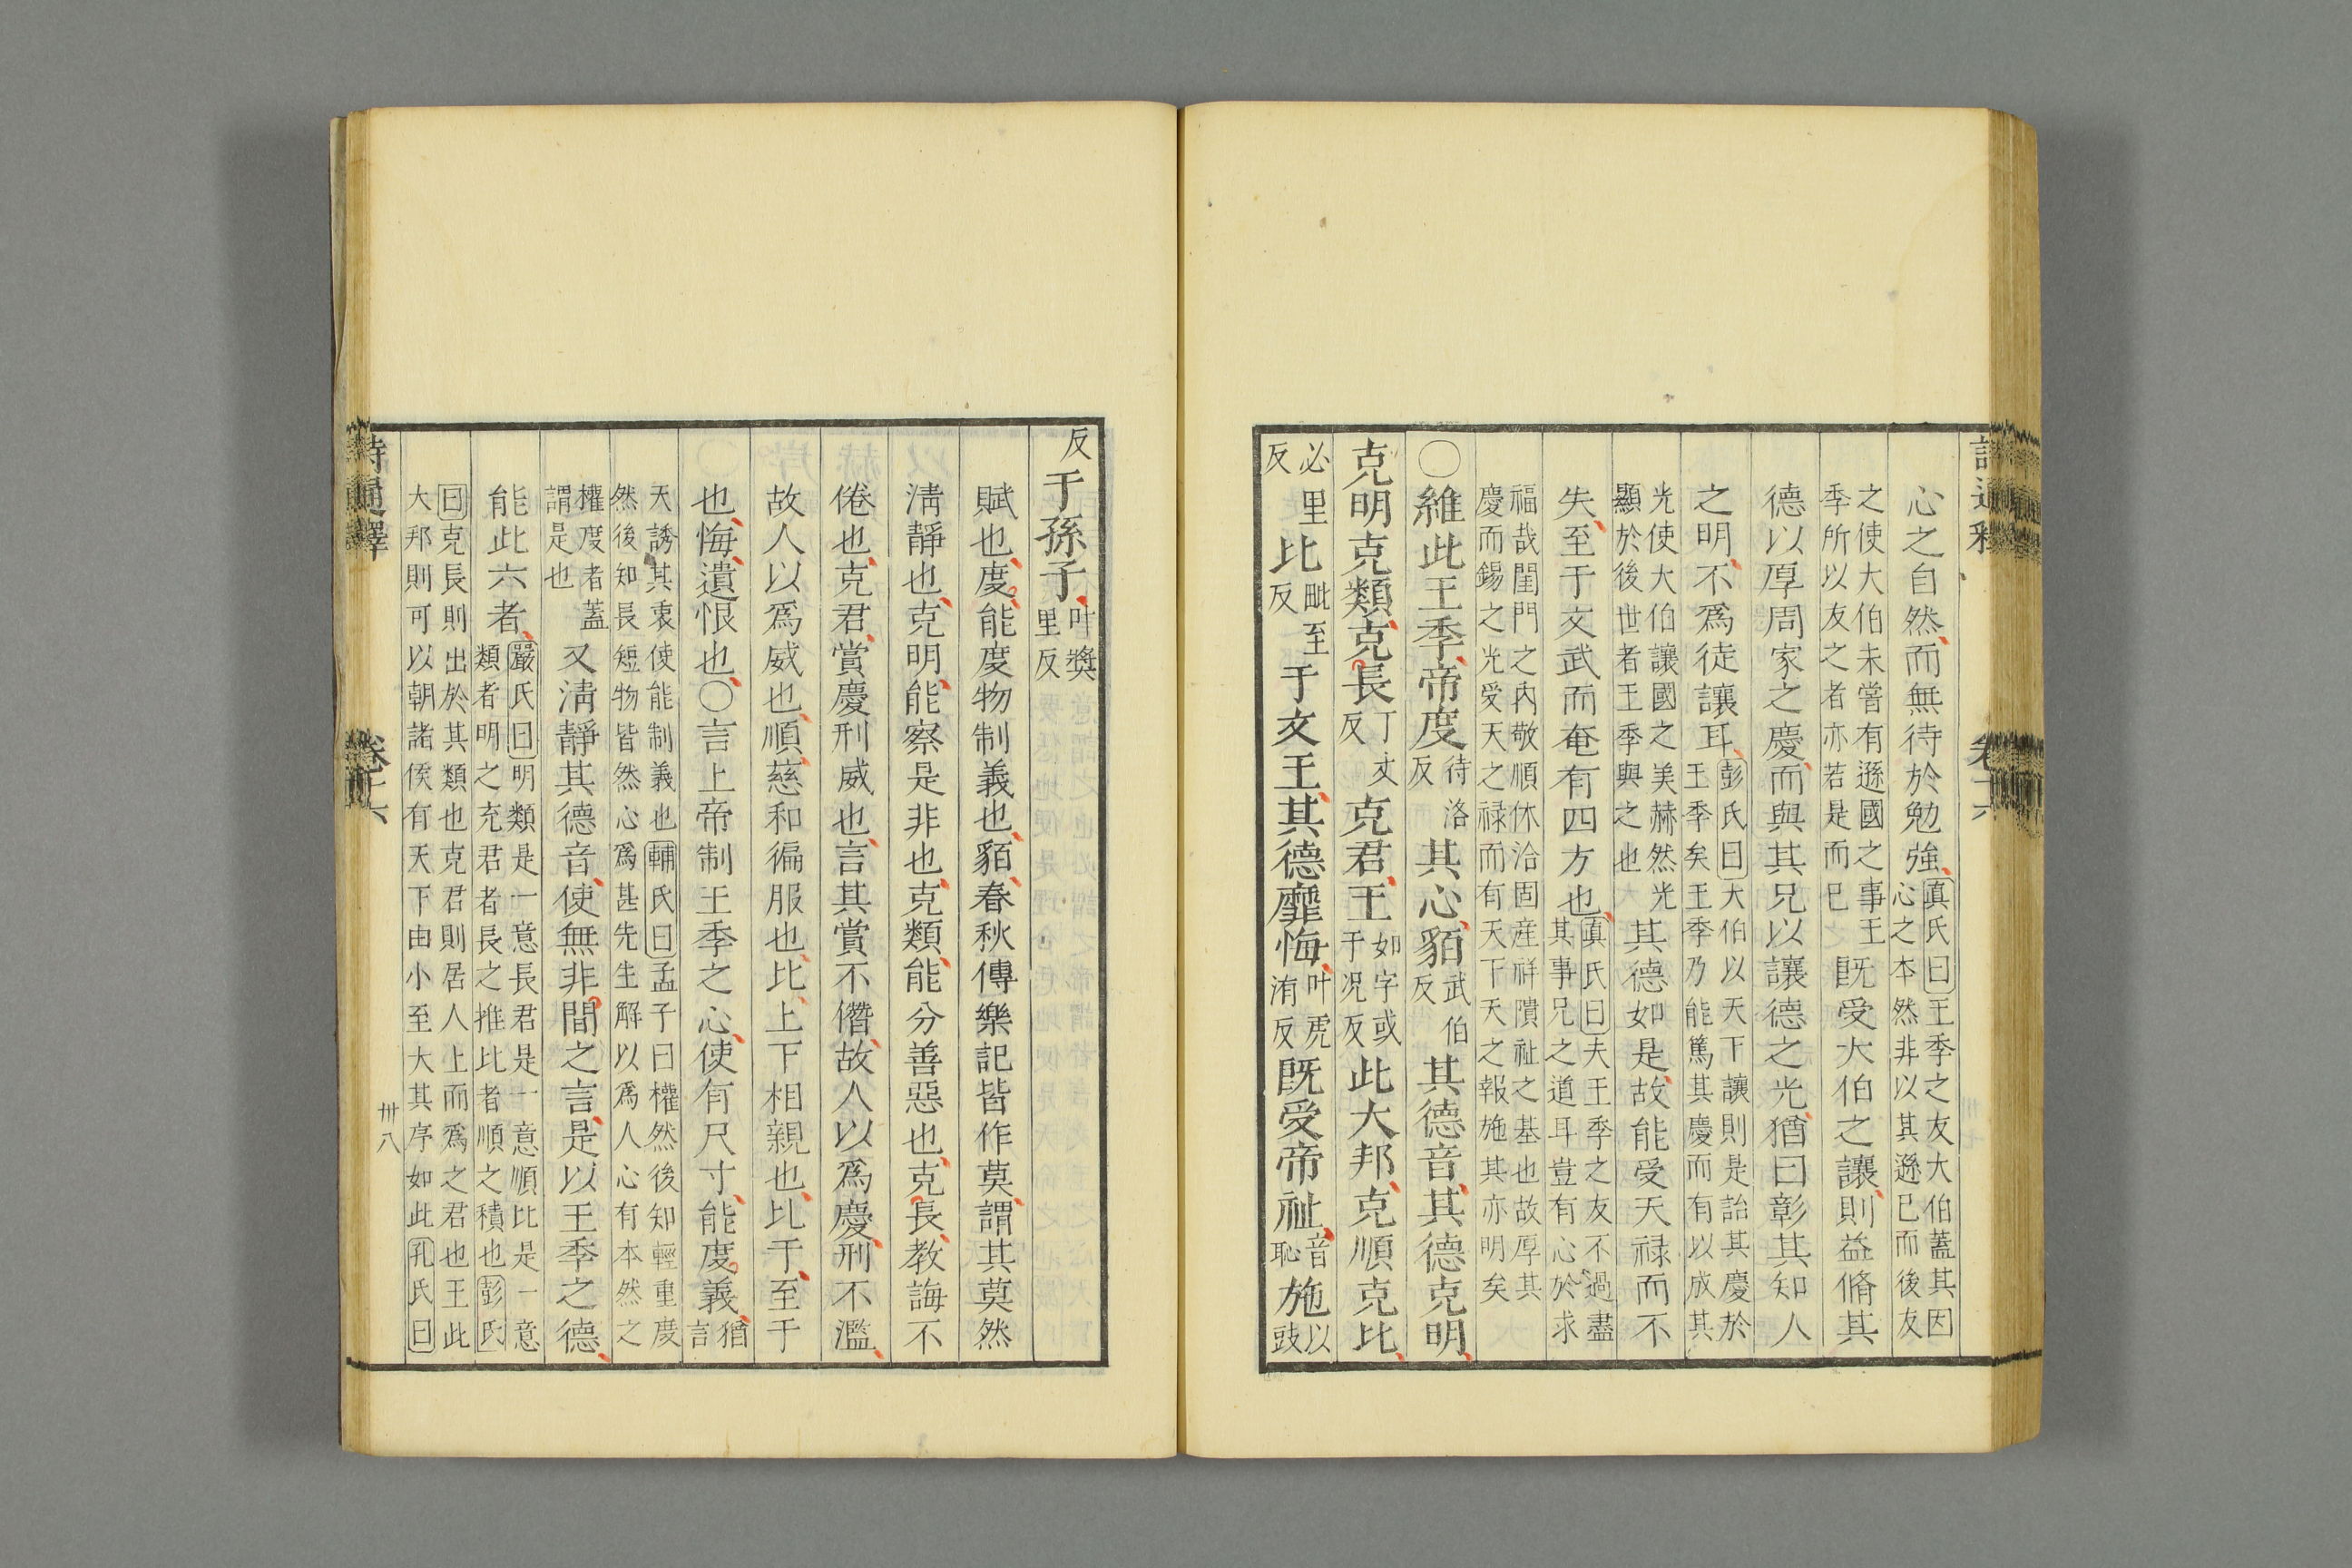 詩通釋 卷十六
心之自然而無待於勉強真氏曰王季之友大伯蓋其因心之本然非以其遜已而後友
之使大伯未嘗有遜國之事王季所以友之者亦若是而已既受大伯之讓則益脩其
德以厚周家之慶而與其兄以讓德之光猶曰彰其知人
之明不爲徒讓耳彭氏曰大伯以天下讓則是詒其慶於王季矣王季乃能篤其慶而有以成其
光使大伯讓國之美赫然光顯於後世者王季與之也其德如是故能受天禄而不
失至于文武而奄有四方也真氏曰夫王季之友不過盡其事兄之道耳豈有心於求
福哉閨門之内敬順休洽固産祥隤祉之基也故厚其慶而錫之光受天之禄而有天下天之報施其亦明矣
○維此王季帝度待洛反其心貊武伯反其德音其德克明
克明克類克長丁丈反克君王如字或于况反此大邦克順克比
必里反比毗至反于文王其德靡悔叶虎洧反既受帝祉音恥施以豉
反于孫子叶獎里反
賦也度能度物制義也貊春秋傳樂記皆作莫謂其莫然
淸靜也克明能察是非也克類能分善惡也克長教誨不
倦也克君賞慶刑威也言其賞不僭故人以爲慶刑不濫
故人以爲威也順慈和徧服也比上下相親也比于至于
也悔遺恨也○言上帝制王季之心使有尺寸能度義猶言
天誘其衷使能制義也輔氏曰孟子曰權然後知輕重度然後知長短物皆然心爲甚先生解以爲人心有本然之
權度者蓋謂是也又淸靜其德音使無非間之言是以王季之德
能此六者嚴氏曰明類是一意長君是一意順比是一意類者明之充君者長之推比者順之積也彭氏
曰克長則出於其類也克君則居人上而爲之君也王此大邦則可以朝諸侯有天下由小至大其序如此孔氏曰
詩通釋 卷十六 卅八